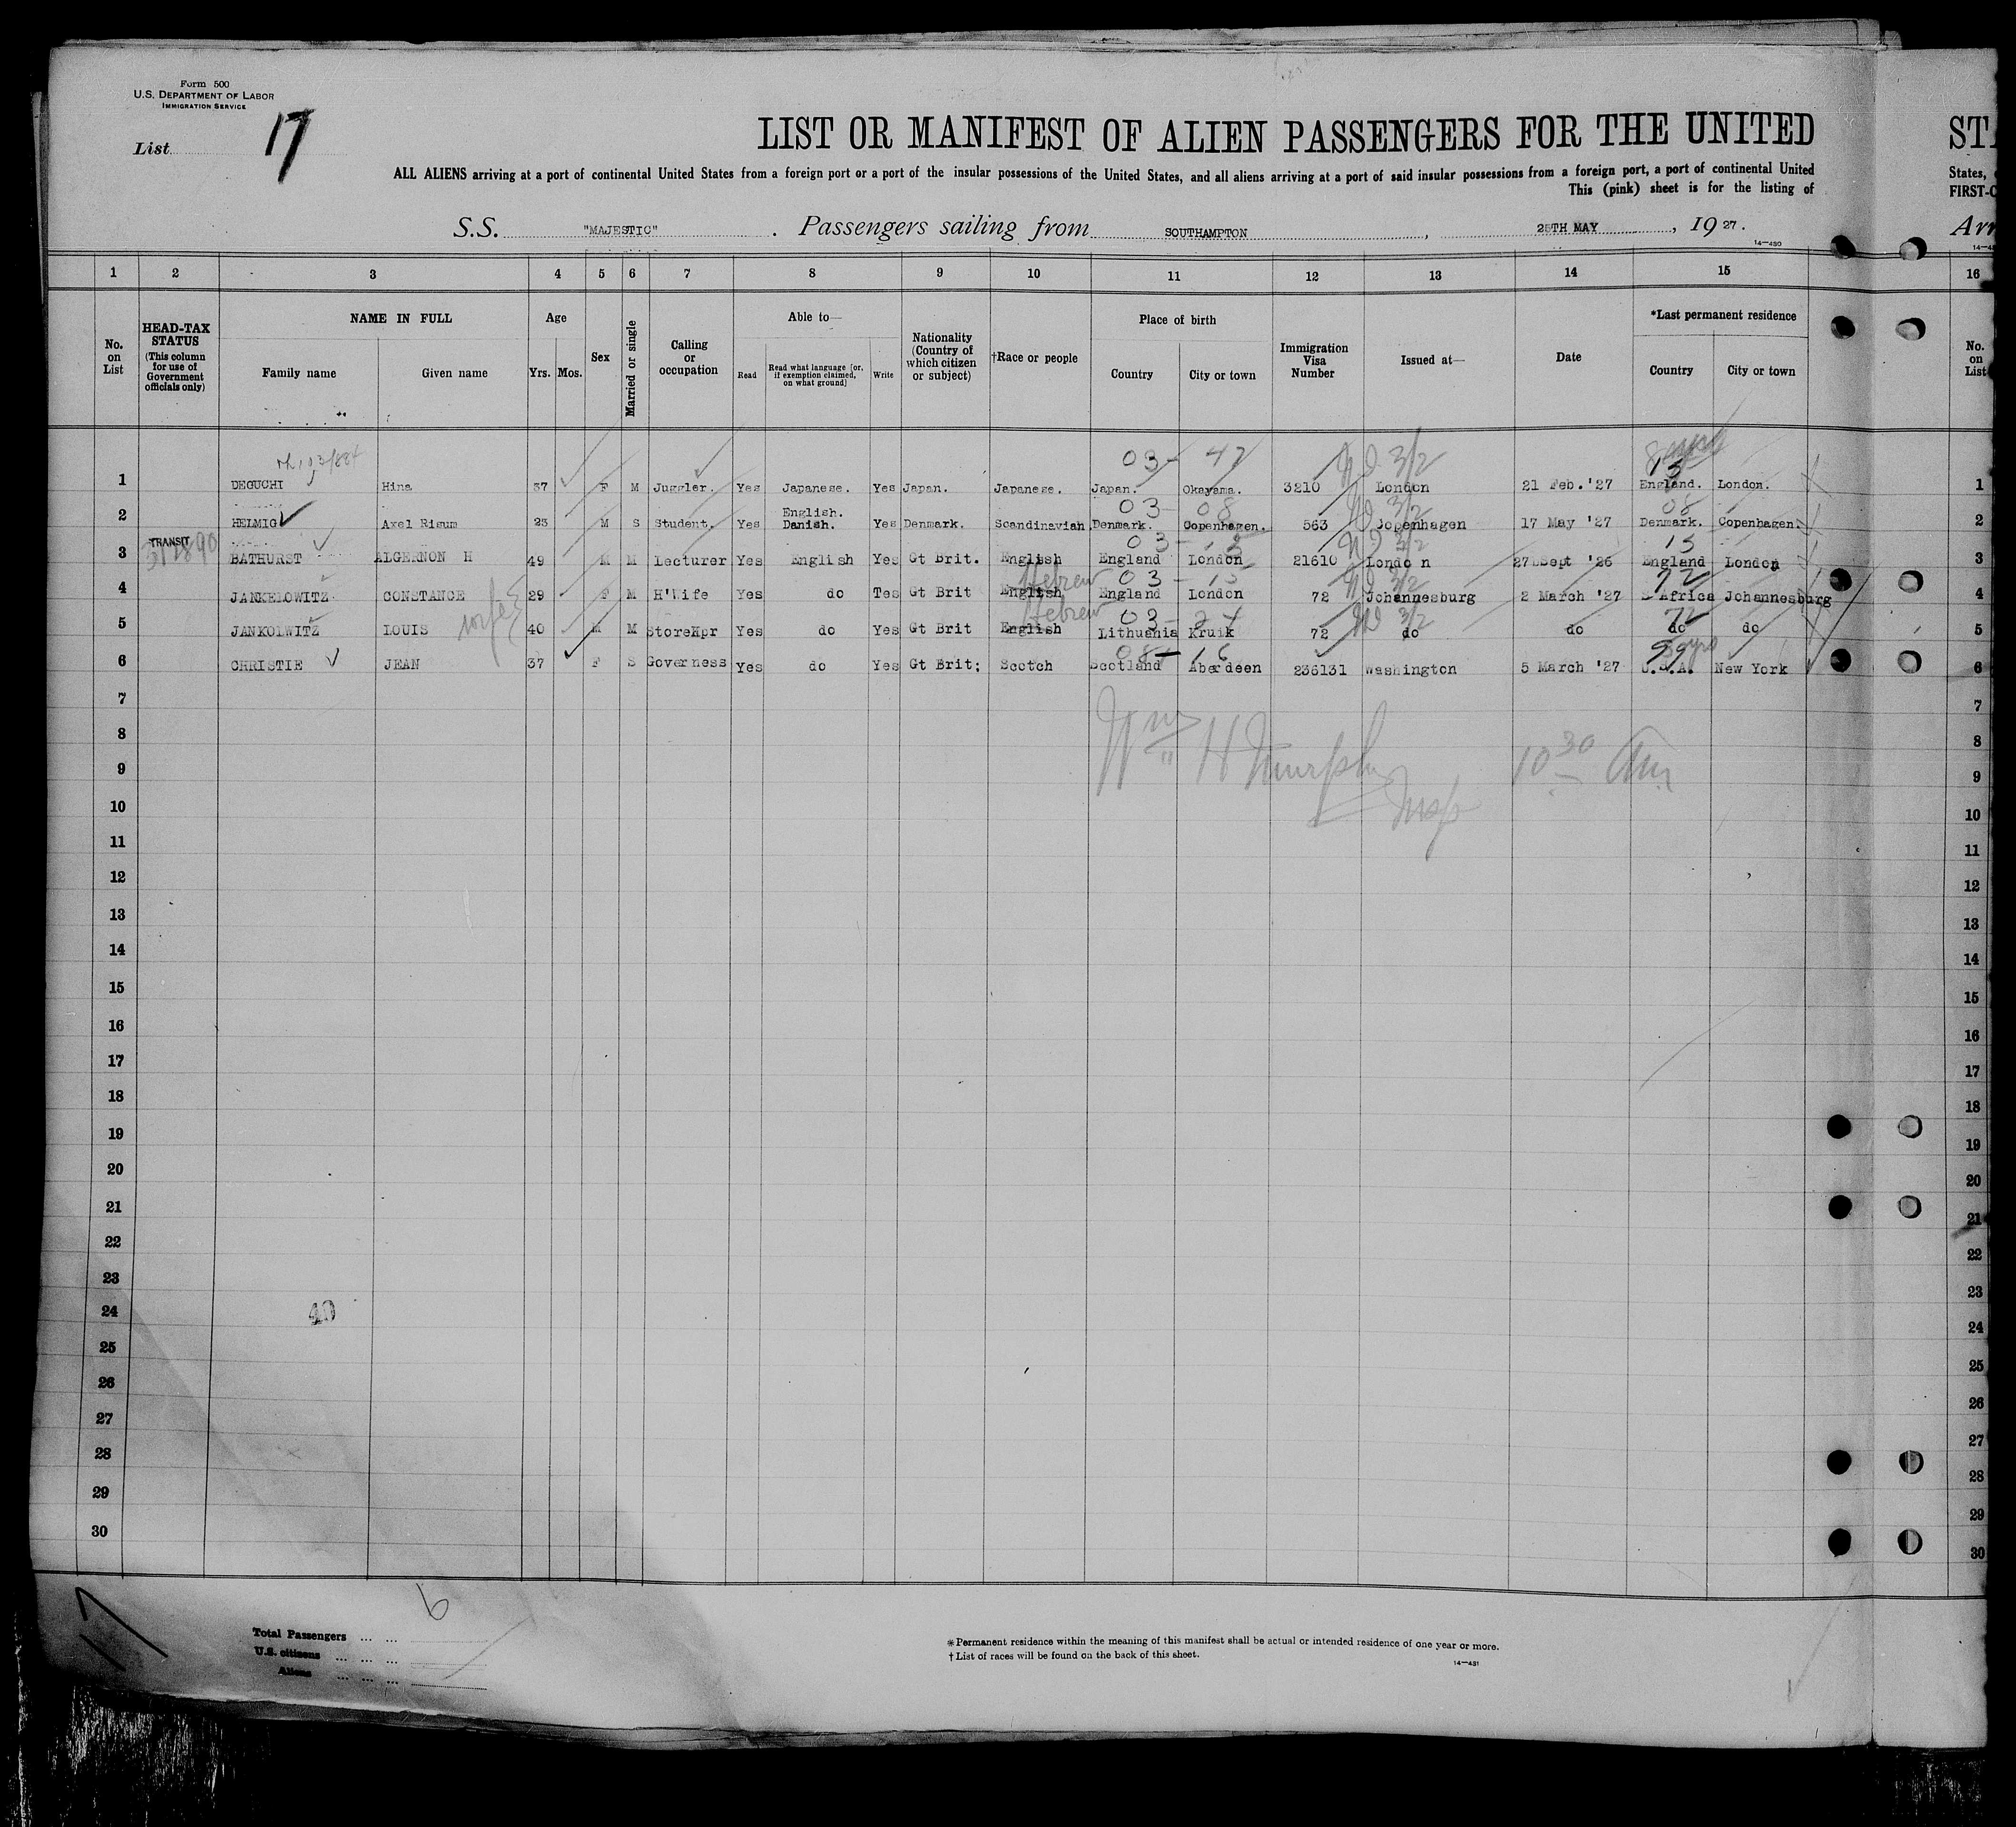 Form 500
U.S. DEPARTMENT OF LABOR
IMMIGRATION SERVICE
List 17
LIST OR MANIFEST OF ALIEN PASSENGERS FOR THE UNITED
ALL ALIENS arriving at a port of continental United States from a foreign port or a port of the insular possessions of the United States, and all aliens arriving at a port of said insular possessions from a foreign port, a port of continental United
This (pink) sheet is for the listing of
States,
FIRST-C
S.S. "MAJESTIC". Passengers sailing from SOUTHAMPTON, 25TH MAY, 19 27.
14—480
1 2 3 4 5 6 7 8 9 10 11 12 13 14 15 16
No. on List
HEAD-TAX STATUS (This column for use of Government officials only)
NAME IN FULL
Family name Given name
Age
Yrs. Mos.
Sex
Married or single
Calling or occupation
Able to—
Read Read what language [or, if exemption claimed, on what ground] Write
Nationality (Country of which citizen or subject)
†Race or people
Place of birth
Country City or town
Immigration Visa Number
Issued at—
Date
*Last permanent residence
Country City or town
No. on List
03 - 47
1 DEGUCHI Hina 37 F M Juggler. Yes Japanese. Yes Japan. Japanese. Japan. Okayama. 3210 London 21 Feb.'27 England. London. 1
03 - 08
2 HELMIG Axel Risum 23 M S Student. Yes English. Danish. Yes Denmark. Scandinavian Denmark. Copenhagen. 563 Jopenhagen 17 May '27 Denmark. Copenhagen. 2
TRANSIT
3 BATHURST ALGERNON H 49 M M Lecturer Yes English Yes Gt Brit. English England London 21610 Londo n 27 Sept '26 England London 3
Hebrew 03 - 15
4 JANKELOWITZ CONSTANCE wife 29 F M H'Wife Yes do Tes Gt Brit English England London 72 Johannesburg 2 March '27 S Africa Johannesburg 4
Hebrew 03 - 24
5 JANKOLWITZ LOUIS 40 M M StoreKpr Yes do Yes Gt Brit English Lithuania Kruik 72 do do do do 5
08 - 16
6 CHRISTIE JEAN 37 F S Governess Yes do Yes Gt Brit; Scotch Scotland Aberdeen 236131 Washington 5 March '27 U.S.A. New York 6
7 7
8 8
Wm H Murphy 10 30 Am
9 9
Insp
10 10
11 11
12 12
13 13
14 14
15 15
16 16
17 17
18 18
19 19
20 20
21 21
22 22
23 23
24 40 24
25 25
26 26
27 27
28 28
29 29
30 30
17
6
Total Passengers ... ...
U.S. citizens ... ... ...
Aliens ... ... ...
*Permanent residence within the meaning of this manifest shall be actual or intended residence of one year or more.
†List of races will be found on the back of this sheet.
14—481